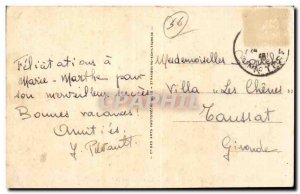 Félicitations à
Marie-Marthe pour
son merveilleux succès
Bonnes vacances!
Amitiés.
56
Mesdemoiselles
Villa "Les Chênes"
Taussat
Gironde